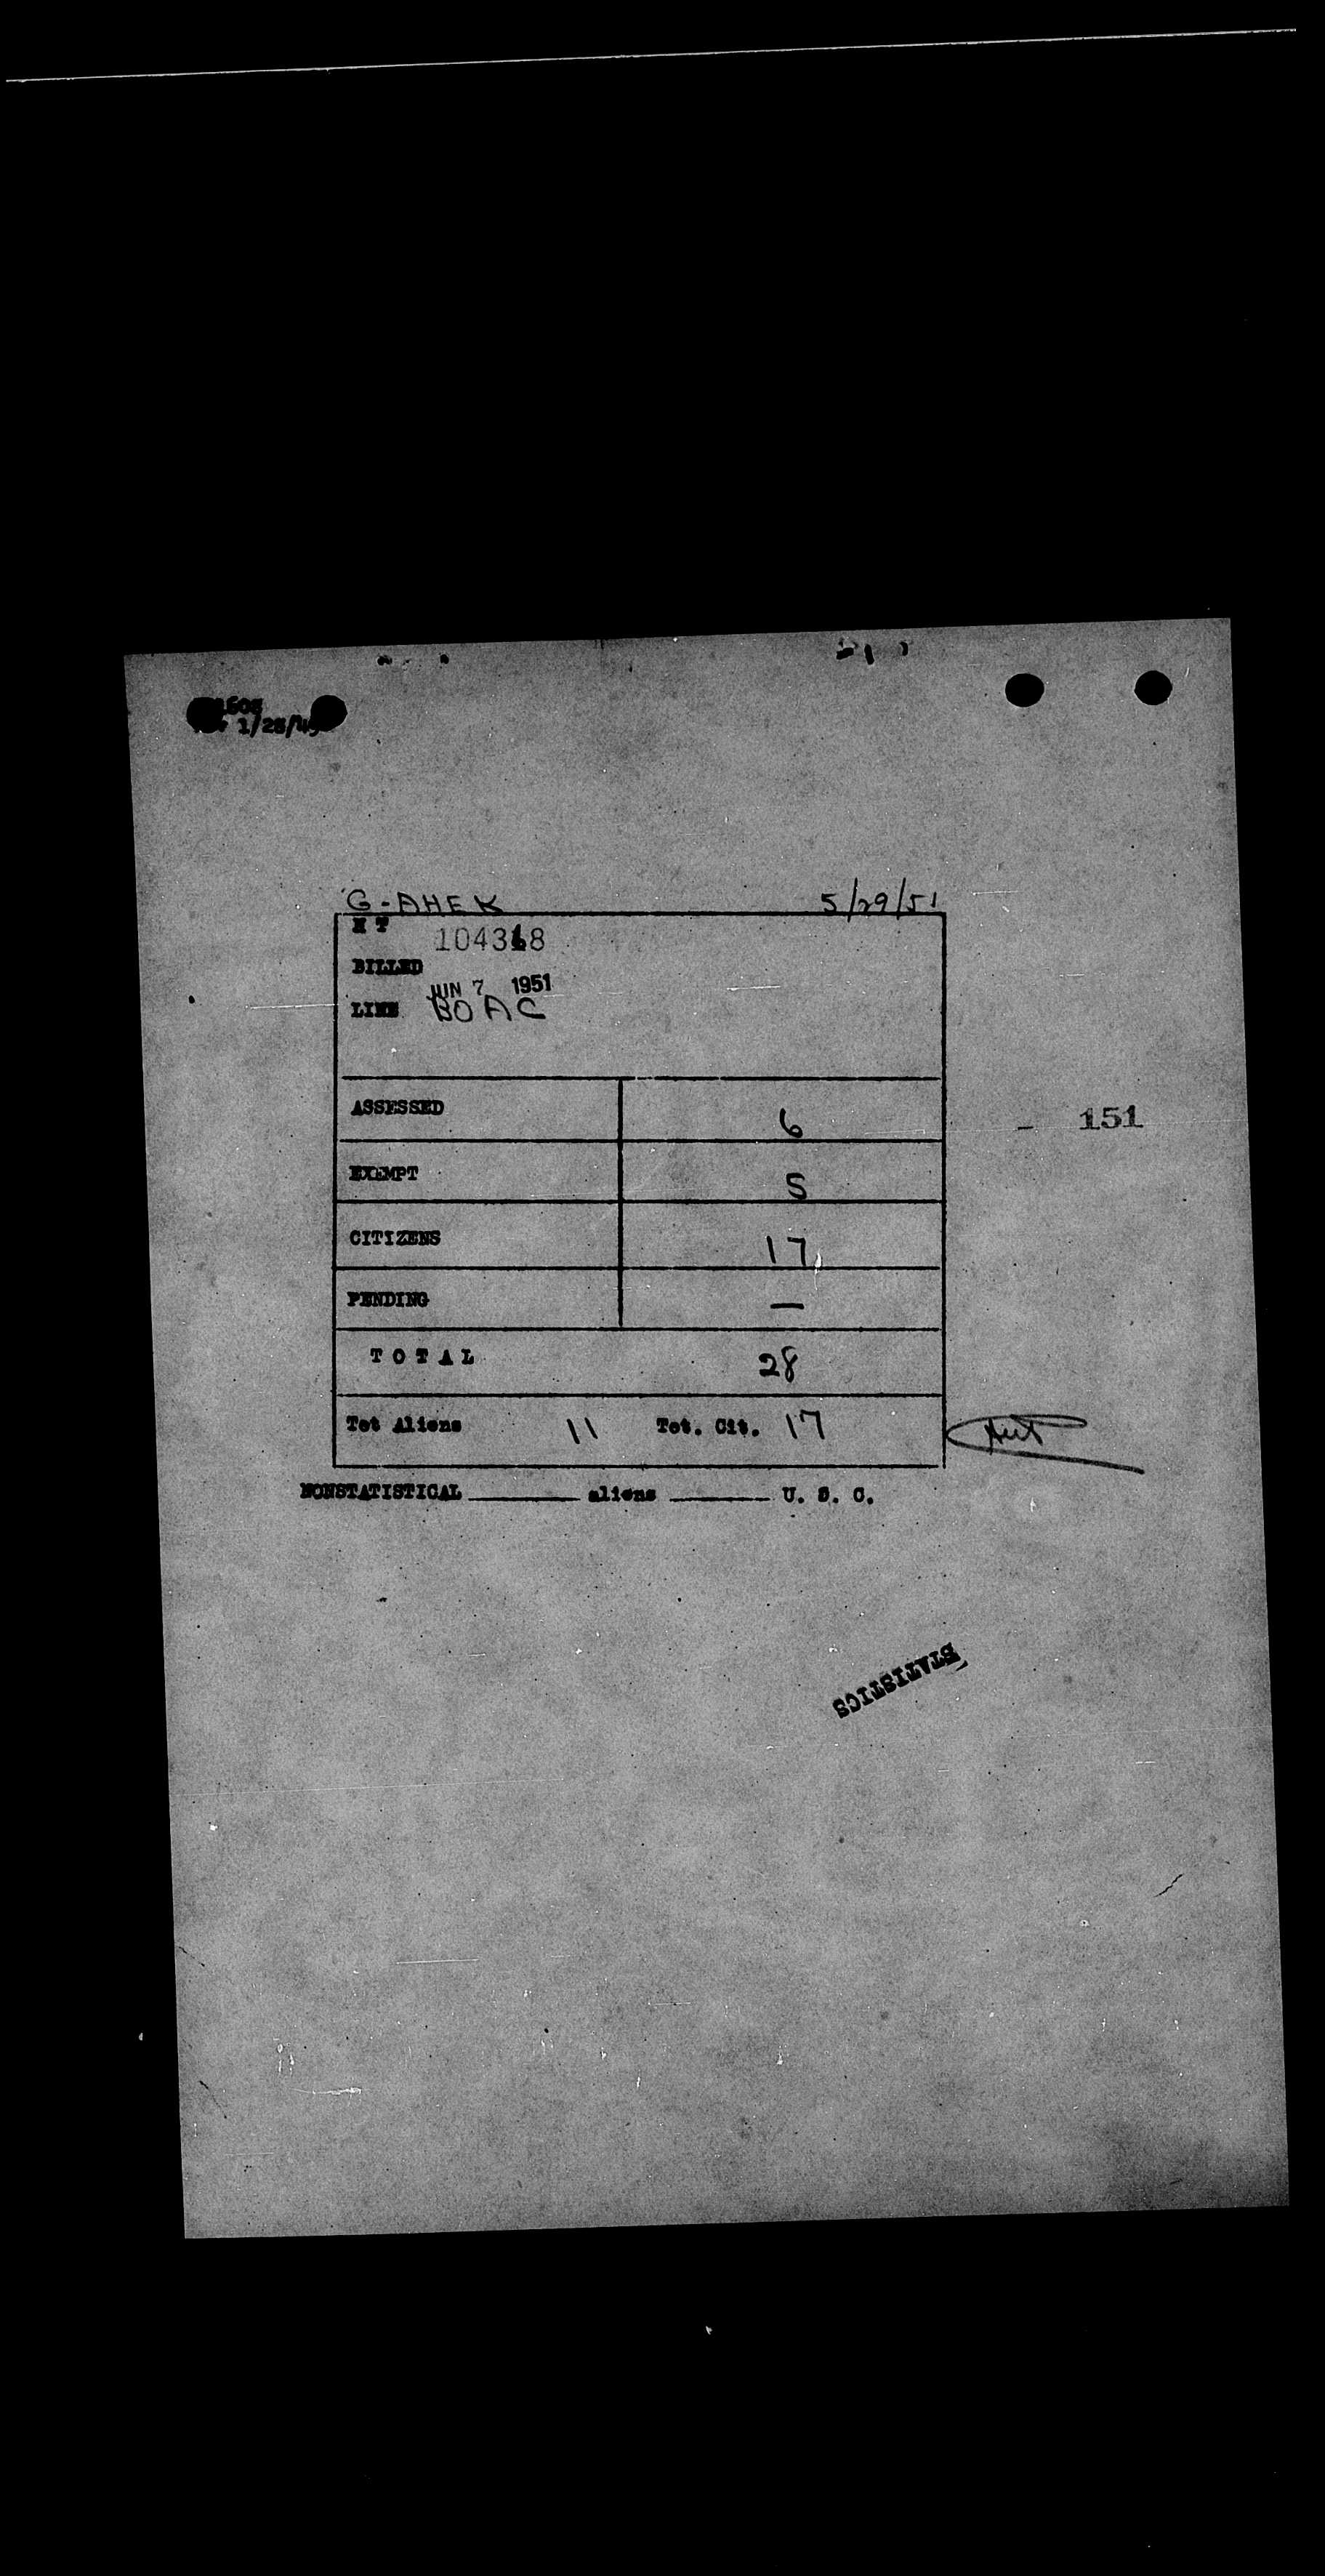 1/25/49
G-AHEK 5/29/51
H T 104318
BILLED
JUN 7 1951
LINE BOAC
ASSESSED 6
- 151
EXEMPT 5
CITIZENS 17
PENDING —
TOTAL 28
Tot Aliens 11 Tot. Cit. 17
NONSTATISTICAL ________ aliens ________ U. S. C.
STATISTICS